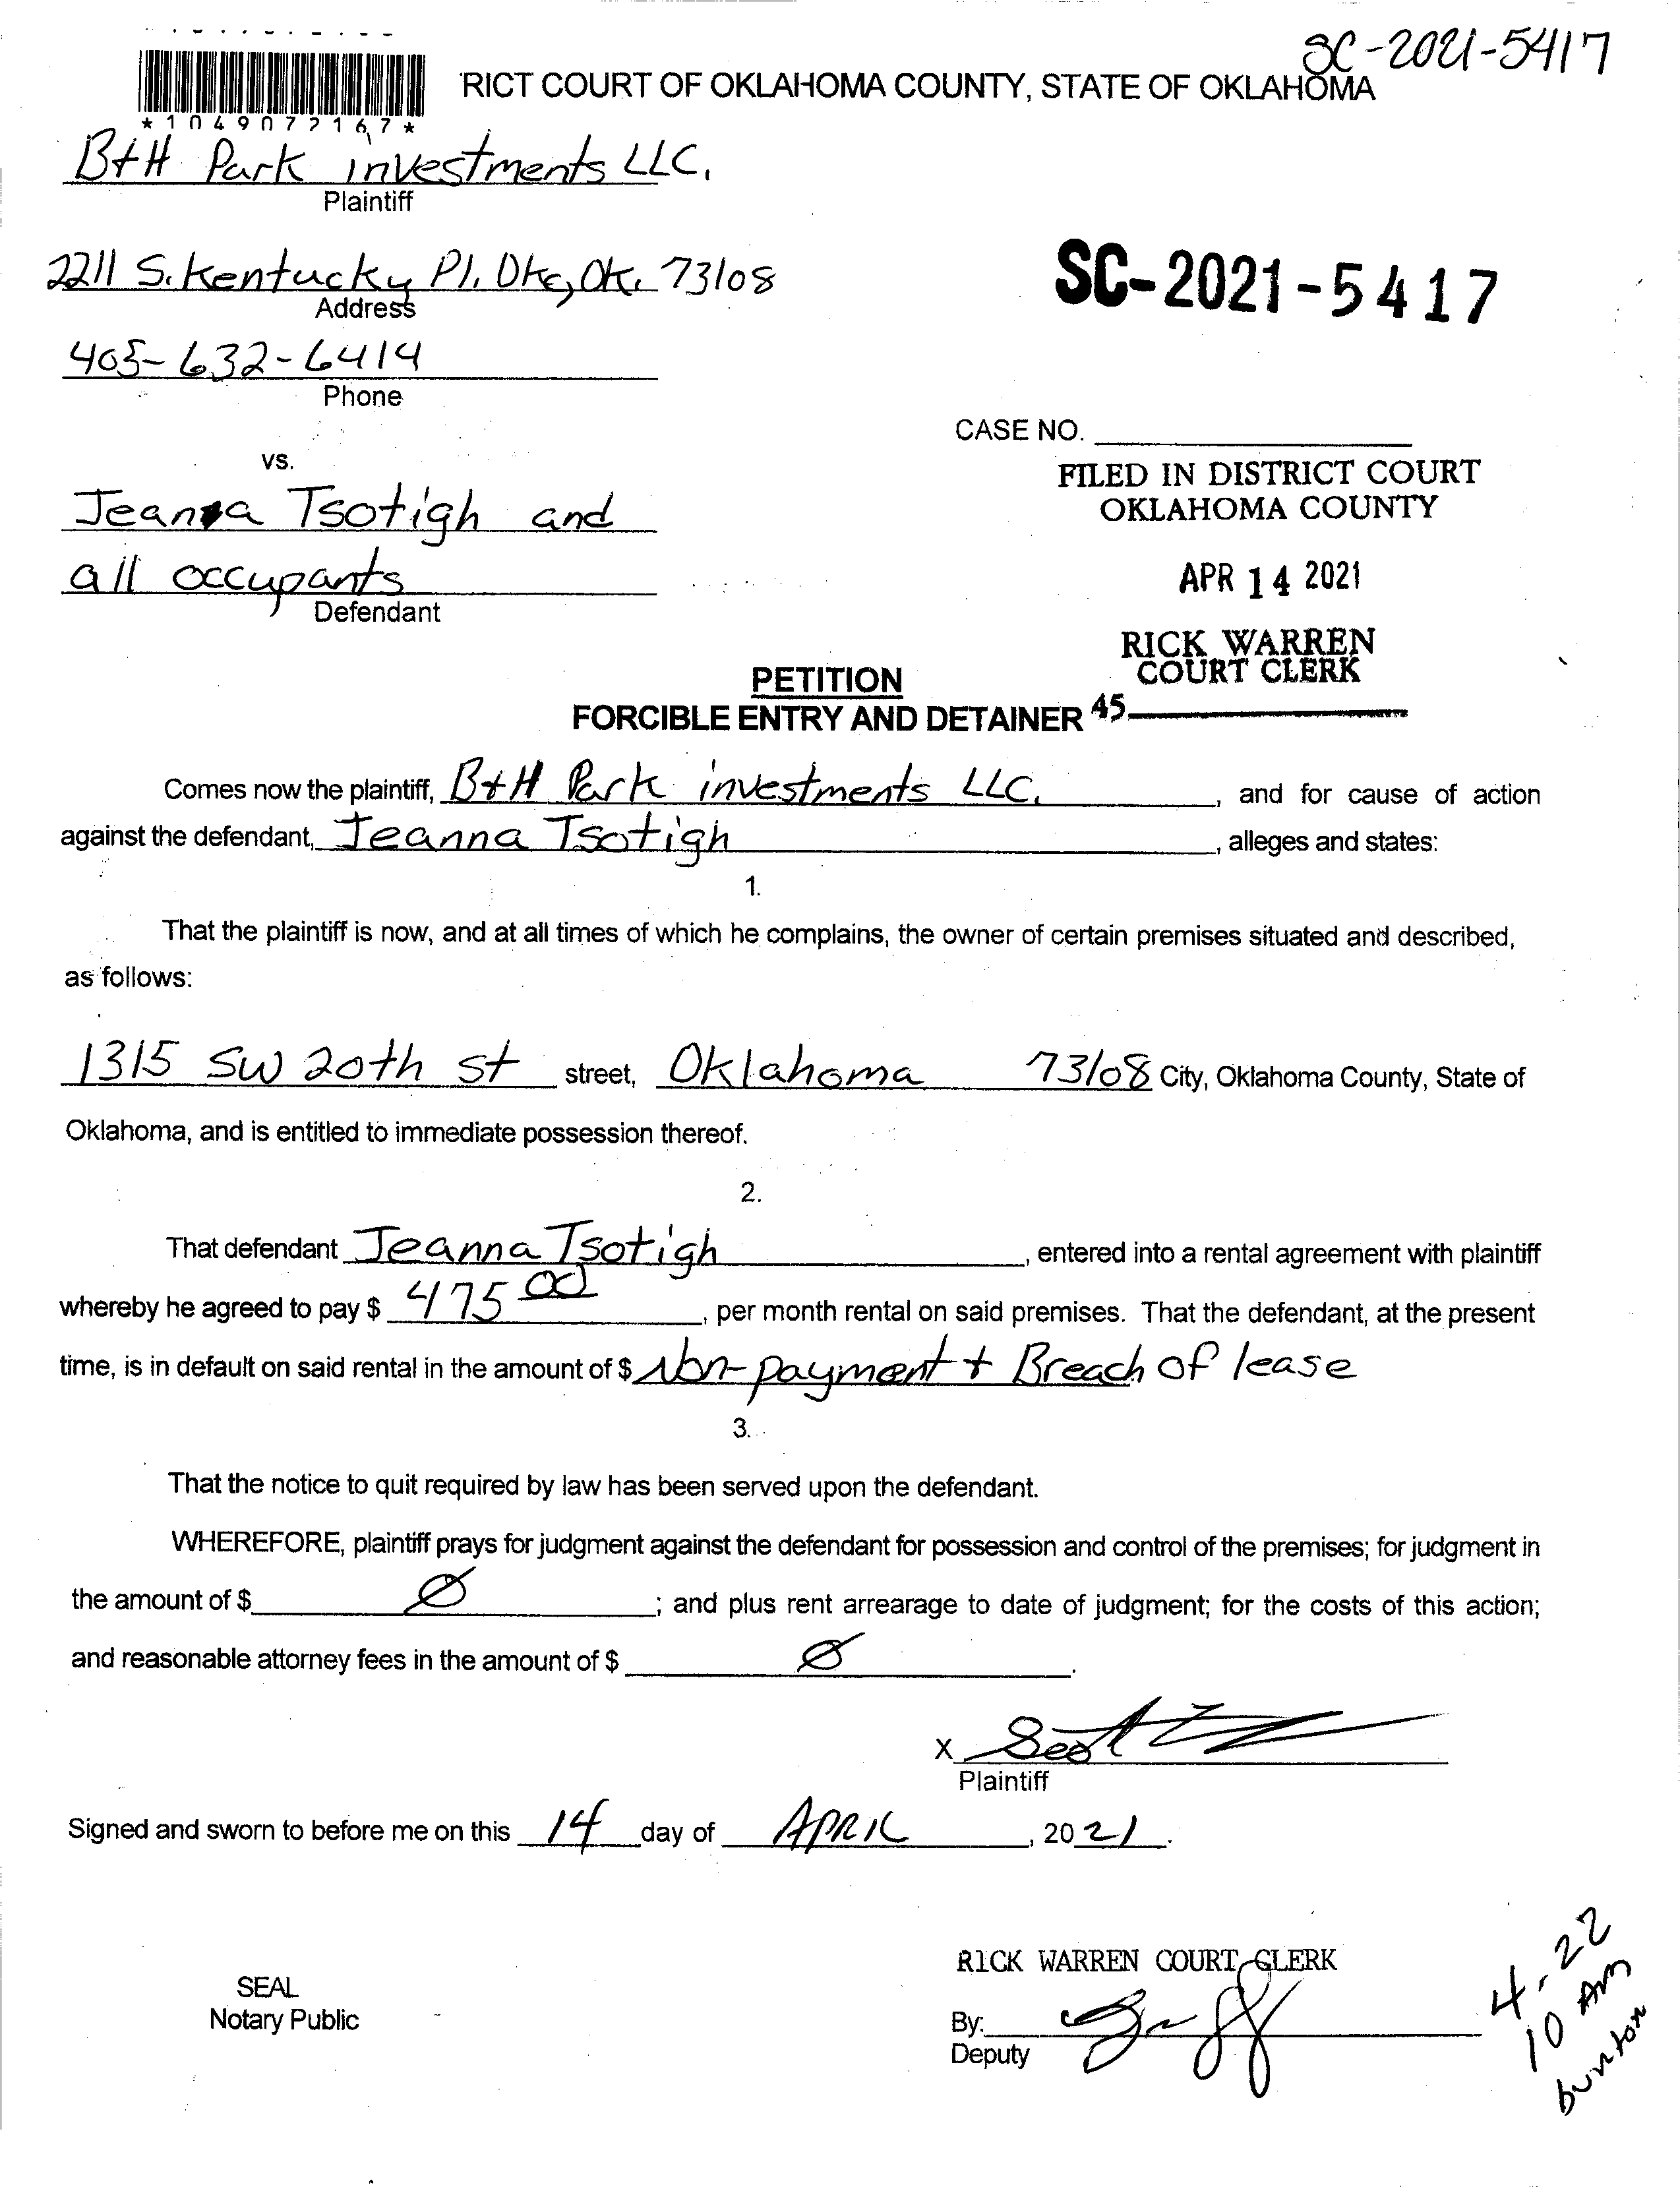 SC-2021-5417
RICT COURT OF OKLAHOMA COUNTY, STATE OF OKLAHOMA
*1049072167*
B+H Park investments LLC.
Plaintiff
2211 S. Kentucky Pl. Okc, Ok. 73108
Address
SC-2021-5417
405-632-6414
Phone
CASE NO.
vs.
FILED IN DISTRICT COURT
OKLAHOMA COUNTY
Jeanna Tsotigh and
all occupants
Defendant
APR 14 2021
RICK WARREN
COURT CLERK
PETITION
FORCIBLE ENTRY AND DETAINER 45
Comes now the plaintiff, B+H Park investments LLC., and for cause of action
against the defendant, Jeanna Tsotigh, alleges and states:
1.
That the plaintiff is now, and at all times of which he complains, the owner of certain premises situated and described,
as follows:
1315 SW 20th St street, Oklahoma 73108 City, Oklahoma County, State of
Oklahoma, and is entitled to immediate possession thereof.
2.
That defendant Jeanna Tsotigh, entered into a rental agreement with plaintiff
whereby he agreed to pay $ 475 00, per month rental on said premises. That the defendant, at the present
time, is in default on said rental in the amount of $ Non-payment + Breach of lease
3.
That the notice to quit required by law has been served upon the defendant.
WHEREFORE, plaintiff prays for judgment against the defendant for possession and control of the premises; for judgment in
the amount of $ Ø; and plus rent arrearage to date of judgment; for the costs of this action;
and reasonable attorney fees in the amount of $ Ø.
X Scott
Plaintiff
Signed and sworn to before me on this 14 day of APRIL, 2021.
RICK WARREN COURT CLERK
SEAL
Notary Public
By:
Deputy
4-22
10 AM
bunton